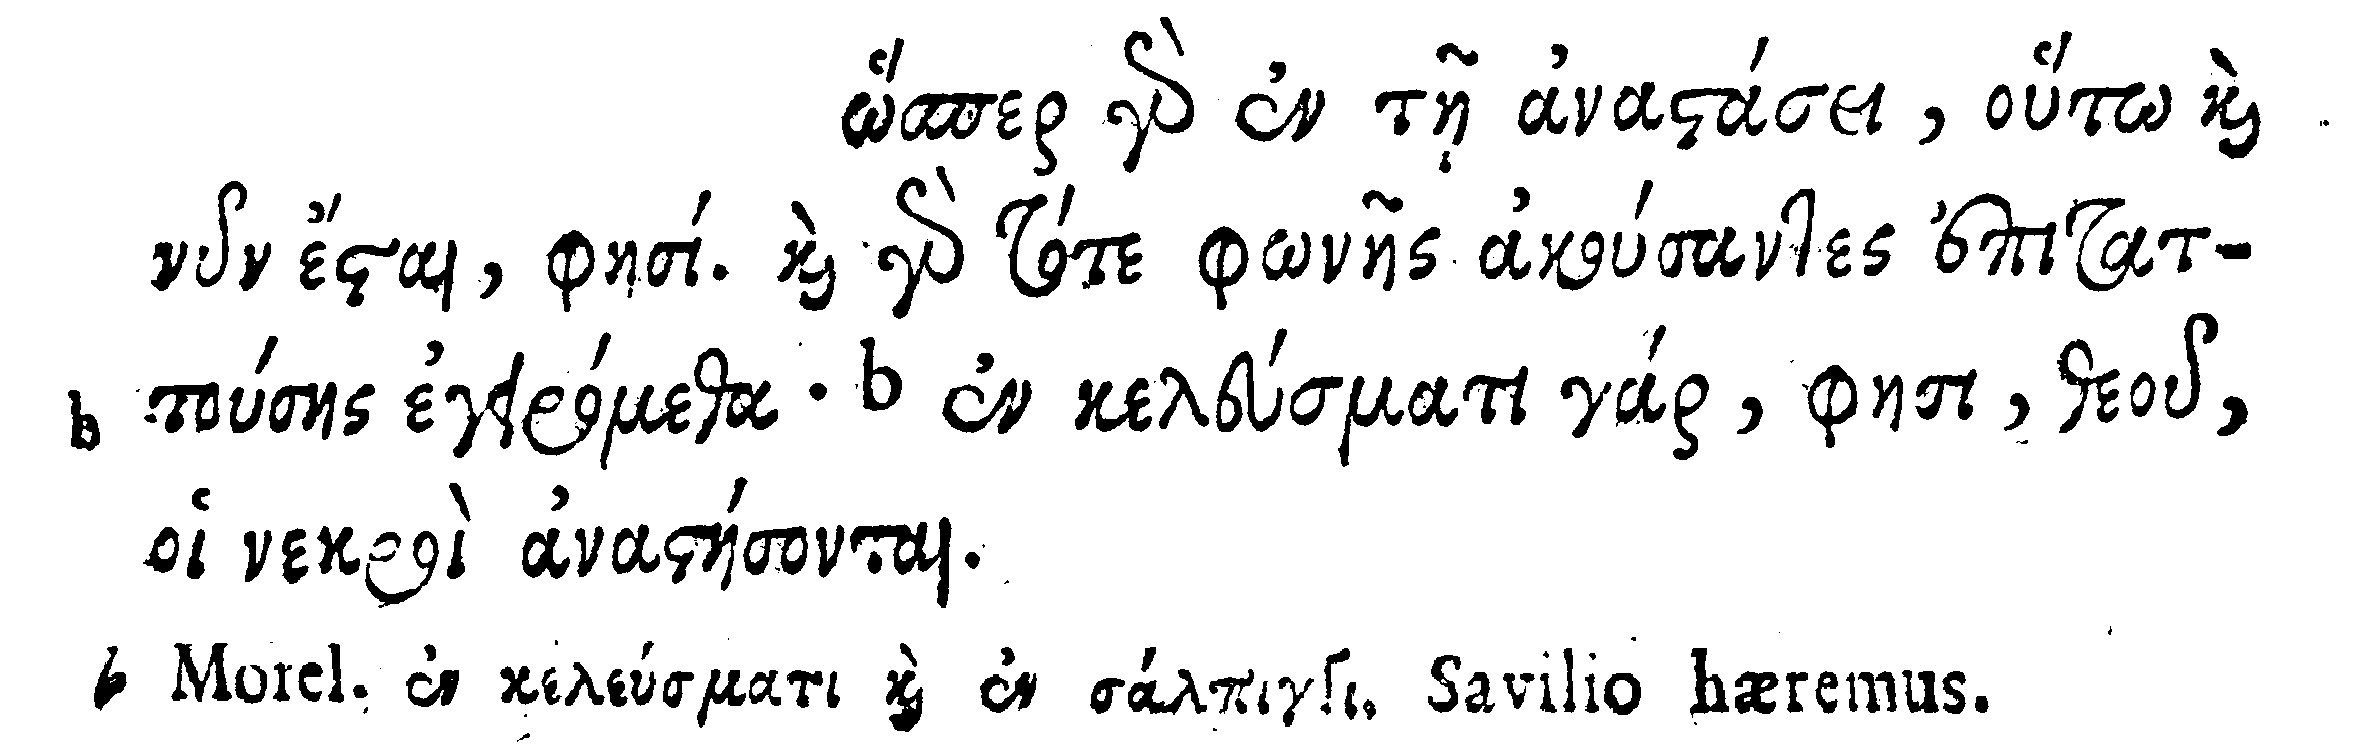 ὥσπερ γὰρ ἐν τῇ ἀναστάσει, οὕτω καὶ
νῦν ἔσται, φησί. καὶ γὰρ τότε φωνῆς ἀκούσαντες ἐπιτατ-
b τούσης ἐγειρόμεθα · b ἐν κελεύσματι γάρ, φησι, θεοῦ,
οἱ νεκροὶ ἀναστήσονται.
b Morel. ἐν κελεύσματι καὶ ἐν σάλπιγγι. Savilio hæremus.